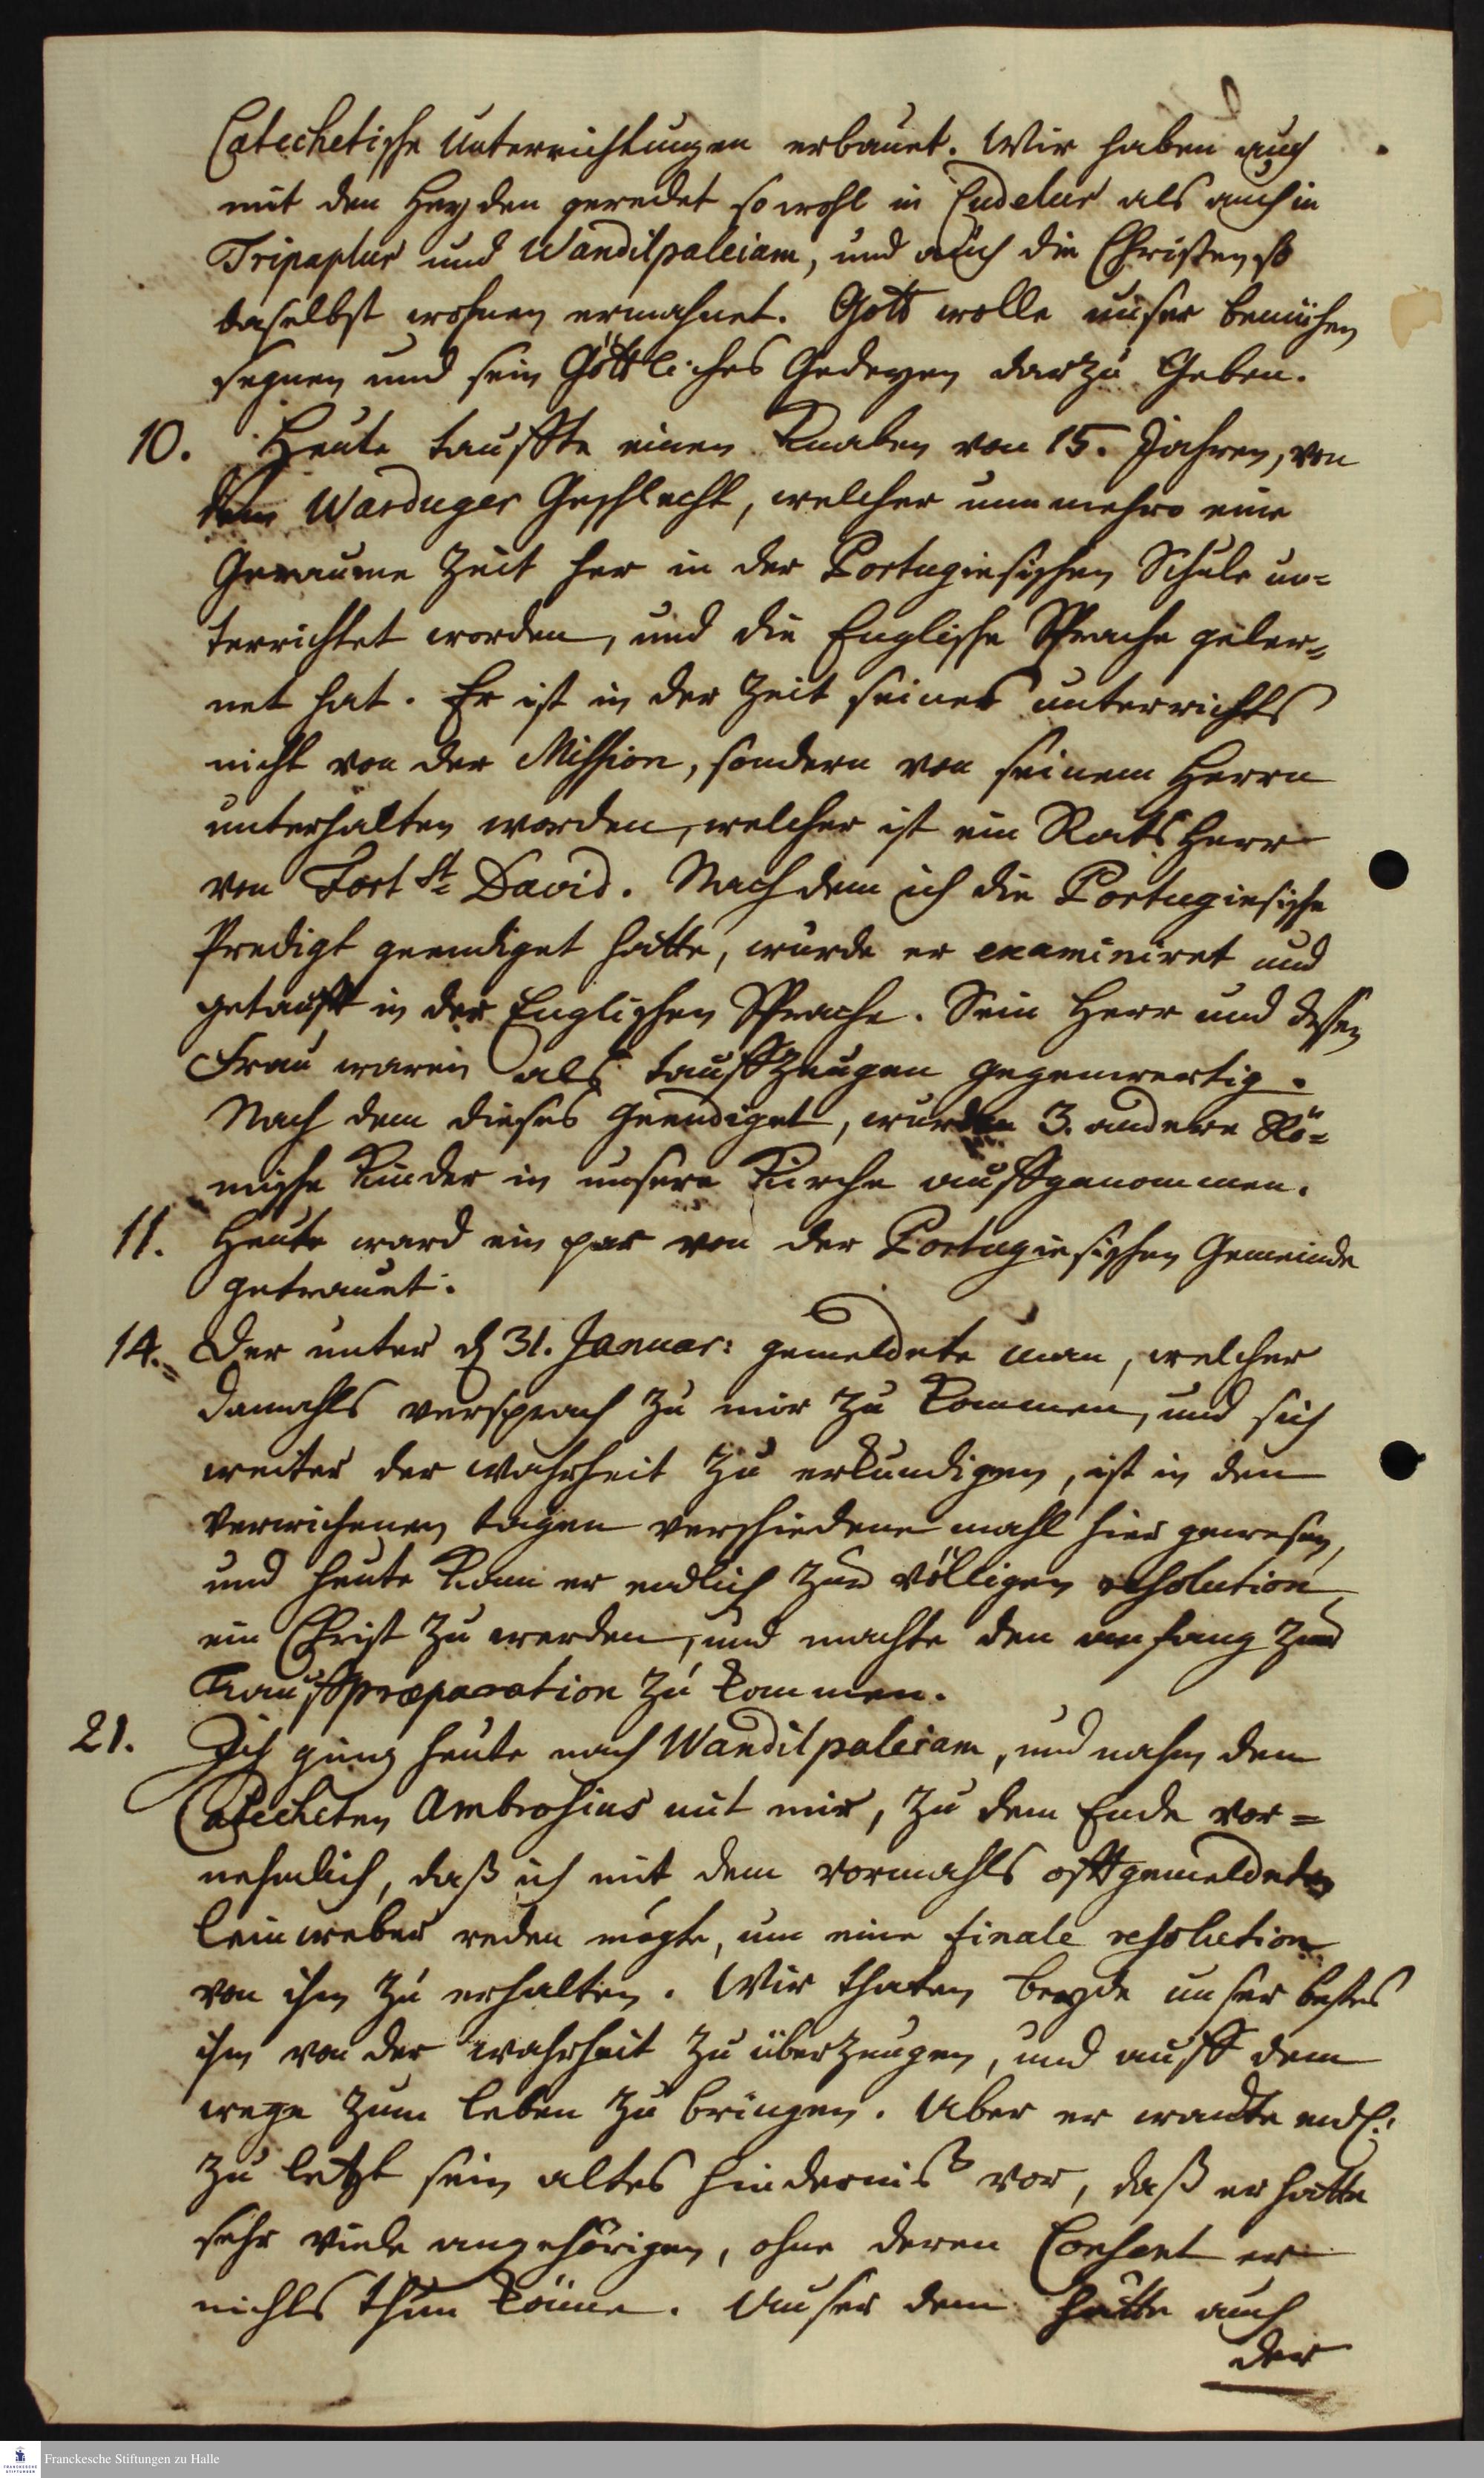 Catechetische Unterrichtungen erbauet. Wir haben auch
mit den Heyden geredet so wohl in Cudelur als auch in
Tripaplur und Wandilpaleiam, und auch die Christen so
daselbst wohnen ermahnet. Gott wolle unser bemühen
segnen und sein Göttliches Gedeyen darzu Geben.
10. Heute tauffte einen Knaben von 15. Jahren, von
dem Warduger Geschlecht, welcher nunmehro eine
Geraume Zeit her in der Portugiesischen Schule un=
terrichtet worden, und die Englische Sprache geler=
net hat. Er ist in der Zeit seines unterrichts
nicht von der Mission, sondern von seinem Herrn
unterhalten worden, welcher ist ein Rats Herr
von Fort St David. Nach dem ich die Portugiesische
Predigt geendiget hatte, wurde er examiniret und
getaufft in der Englischen Sprache. Sein Herr und dessen
Frau waren als tauffzeugen gegenwertig.
Nach dem dieses geendiget, wurden 3. andere Rö=
mische Kinder in unsere Kirche auffgenommen.
11. Heute ward ein par von der Portugiesischen Gemeinde
getrauet.
14. Der unter d 31. Januar: gemeldete man, welcher
damahls versprach zu mir zu kommen, und sich
weiter der wahrheit zu erkundigen, ist in den
verwichenen tagen verschiedene mahl hier gewesen,
und heute kam er endlich zur völligen resolution,
ein Christ zu werden, und machte den anfang zur
Tauffpræparation zu kommen.
21. Ich ging heute nach Wandilpaleiam, und nahm den
Catecheten Ambrosius mit mir, zu dem Ende vor=
nehmlich, daß ich mit dem vormahls offtgemeldeten
leinweber reden mögte, um eine finale resolution
von ihm zu erhalten. Wir thaten beyde unser bestes
ihn von der wahrheit zu überzeugen, und auff dem
wege zum leben zu bringen. Aber er wandte endl:
zu letzt sein altes hindernis vor, daß er hatte
sehr viele angehörigen, ohne deren Consent er
nichts thun könne. Auser dem hatte auch
der
Franckesche Stiftungen zu Halle